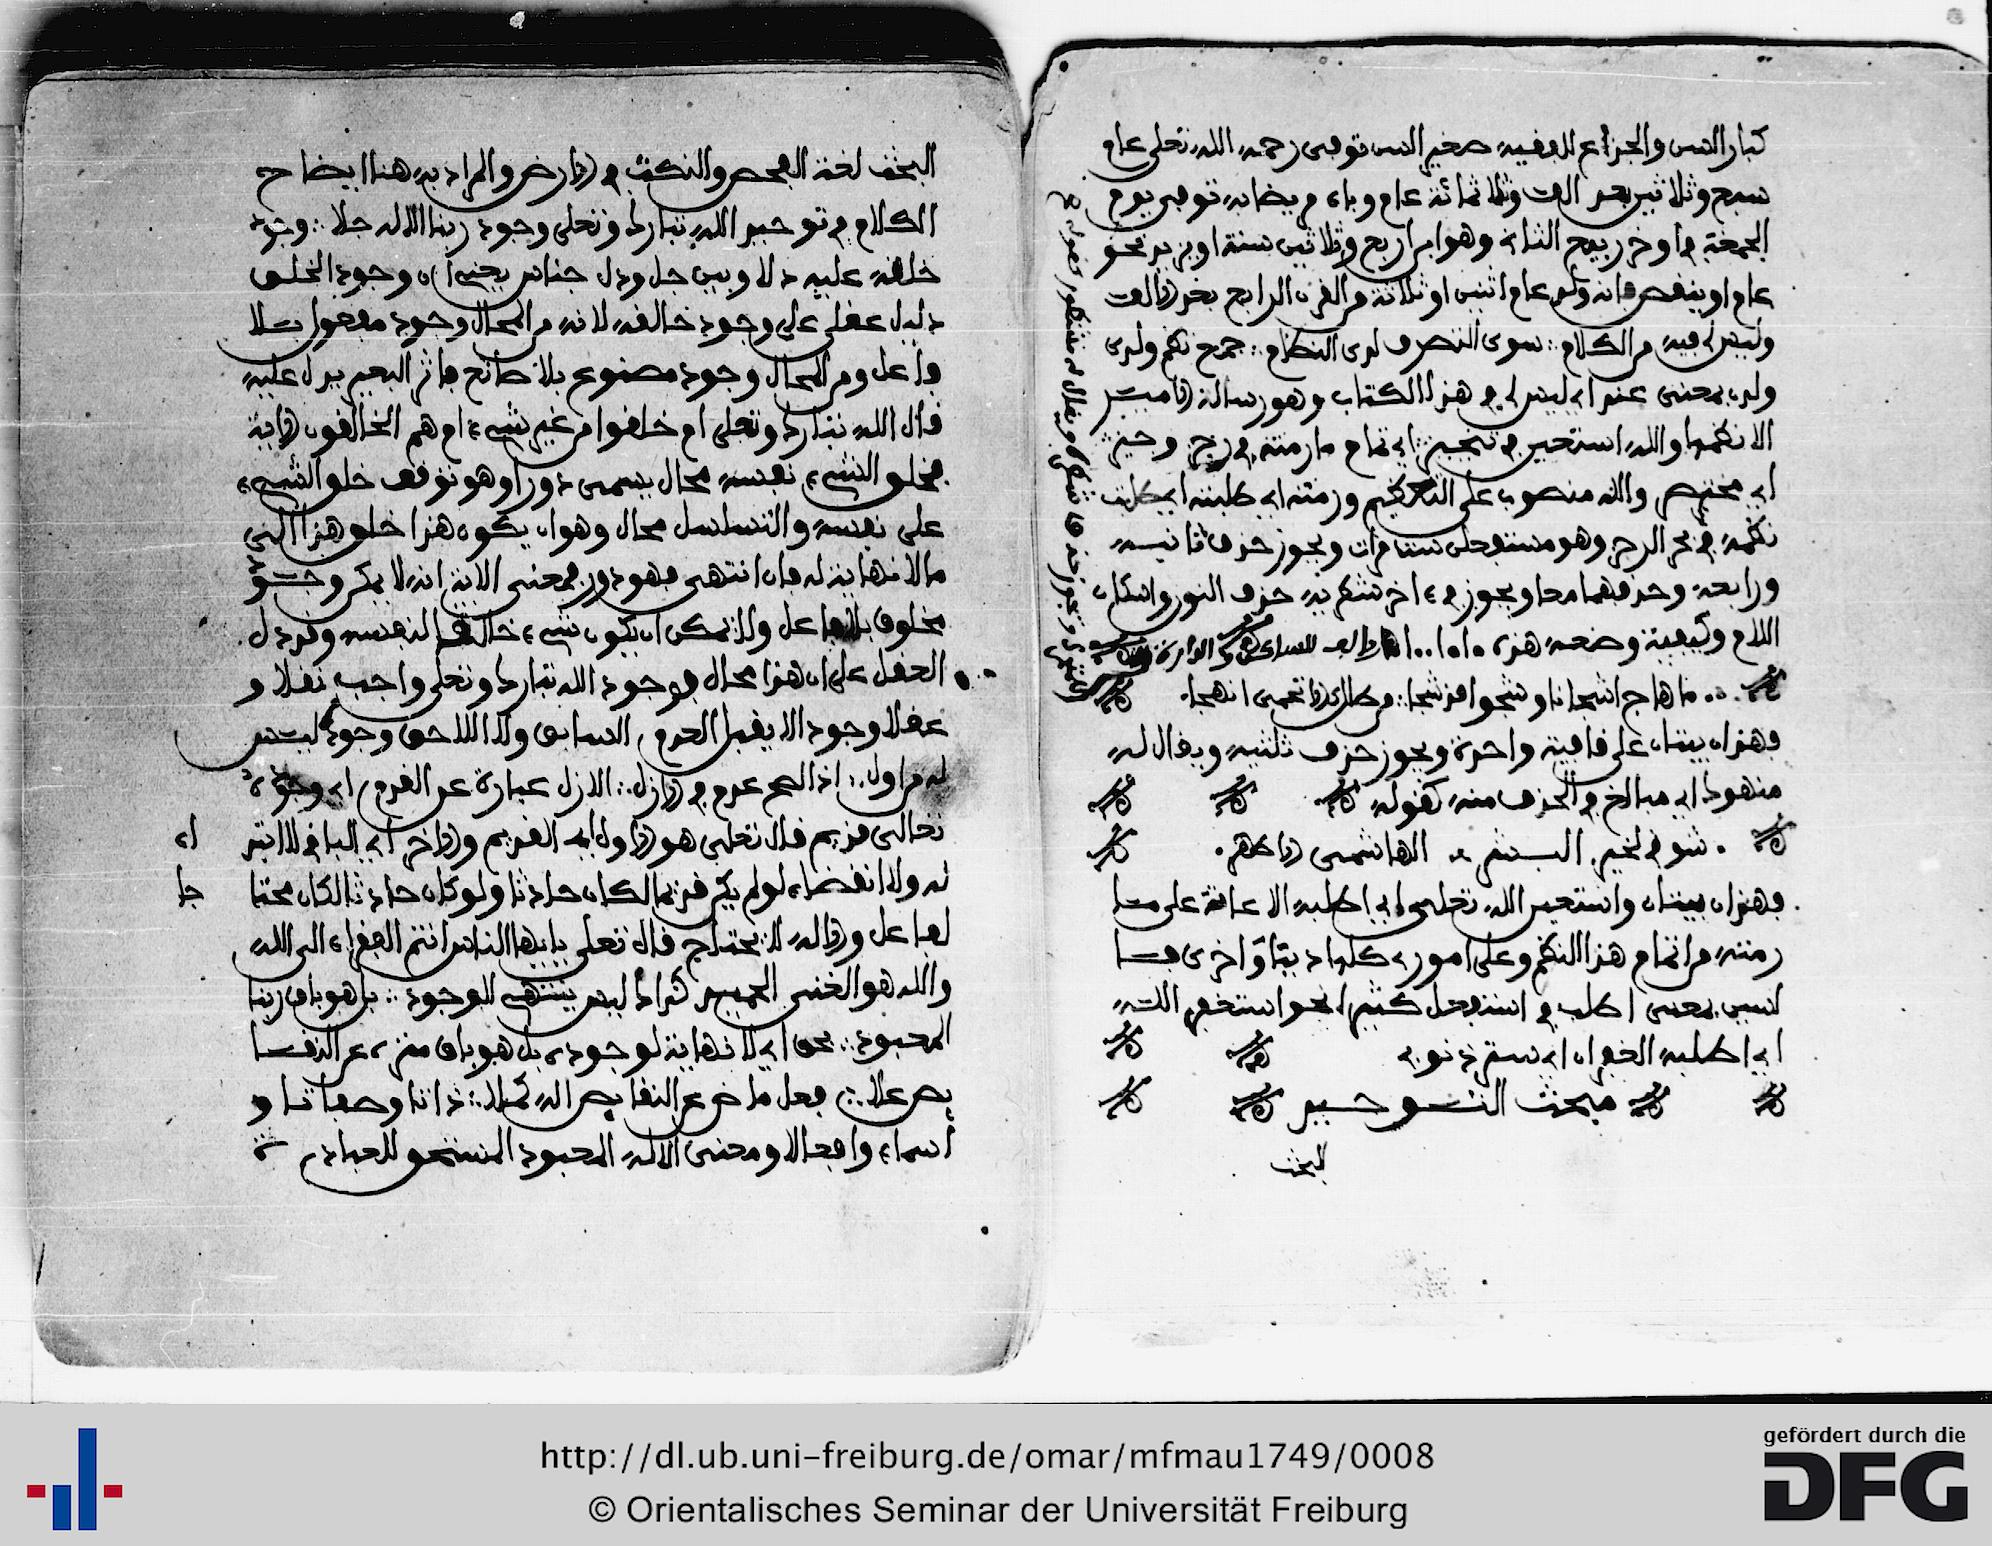 كبار السن والجذاع للافيه صغير السن توفى رحمه الله تعلى عام
سبع وثلاثين بعد الف وثلاثمائة عام وباء م يضانه توفى يوم
الجمعة في اوخر ربيع الثاني وهو ابن اربع وثلاثين سنة او يزيد نحو
عام او ينقص فانه ولد عام اثنين او ثلاثة من القرن الرابع بعد الالف
وليس لي فيه من الكلام سوى التصرف لدى النظام جمع نظم ولدى
ولدن بمعنى عند اي ليس لي في هذا الكتاب وهو رسالة
الا نظمها والله استعين في اي تمام ما رمته في رجز وجيز
اي مختصر والله منصوب على التعظيم ورمته اي طلبته اي طلبت
نظمه في بحر الرجز وهو مستفعلن ست مرات ويجوز حذف ثانيه
ورابعه وحذفهما معا ويجوز في ءاخر شطريه حذف النون واسكان
اللام وكيفية وضعه هذه
ما هاج اشجانا وشجوا قد شجا من طلل كالاتحمي انهجا
فهذان بيتان على قافية واحدة ويجوز حذف ثلثيه ويقال له
منهوك اي مبالغ في الحذف منه كقوله
شوقي لخير البشر الهاشمي الاطهر
فهذان بيتان واستعين الله تعلى اي اطلبه الاعانة على ما
رمته من اتمام هذا النظم وعلى اموري كلها دينا واخرى فا
لسين بمعنى اطلب في استفعل كثيرا نحو استغفر الله
اي اطلبه الغفران اي ستر ذنوبي
مبحث التوحيد
البحث
البحث لغة الفحص والنكت في الارض والمراد به هنا ايضاح
الكلام في توحيد الله تبارك وتعلى وجود ربنا الاله جلا وجود
خلقه عليه دلا وبين جل ودل جناس يعني ان وجود الخلق
دليل عقلي على وجود خالقه لانه من المحال وجود مفعول بلا
فاعل ومن المحال وجود مصنوع بلا صانع فاثر البعير يدل عليه
قال الله تبارك وتعلى ام خلقوا من غير شيء ام هم الخالقون الاية
فخلق الشيء نفسه محال يسمى دورا وهو توقف خلق الشيء
على نفسه والتسلسل محال وهو ان يكون هذا خلق هذا الى
ما لا نهاية له فان انتهى فهو دور فمعنى الاية انه لا يمكن وجود
مخلوق بلا فاعل ولا يمكن ان يكون شيء خالقا لنفسه وقد دل
العقل على ان هذا محال فوجود الله تبارك وتعلى واجب نقلا و
عقلا وجود الا يقبل العدم السابق ولا اللاحق وجوده ليس
له من اول اذ الع عدم في الازل الازل عبارة عن القدم اي وجوده
تعالى قديم قال تعلى هو الاول اي القديم والاخر اي الباقي لا انتهاء
اي
له ولا انقضاء لو لم يكن قديما لكان حادثا ولو كان حادثا لكان محتا
جا
لفاعل والاله لا يحتاج قال تعلى يايها الناس انتم الفقراء الى الله
والله هو الغني الحميد كذاك ليس ينتهي الوجود بل هو باق ربنا
المعبود بحق اي لا نهاية لوجوده بل هو باق منزه عن النقا
يص علا فعل ماض عن النقايص الذ كملا ذاتا وصفاتا و
اسماء وافعالا ومعنى الاله المعبود المستحق للعبادة
http://dl.ub.uni-freiburg.de/omar/mfmau1749/0008
© Orientalisches Seminar der Universität Freiburg
gefördert durch die
DFG